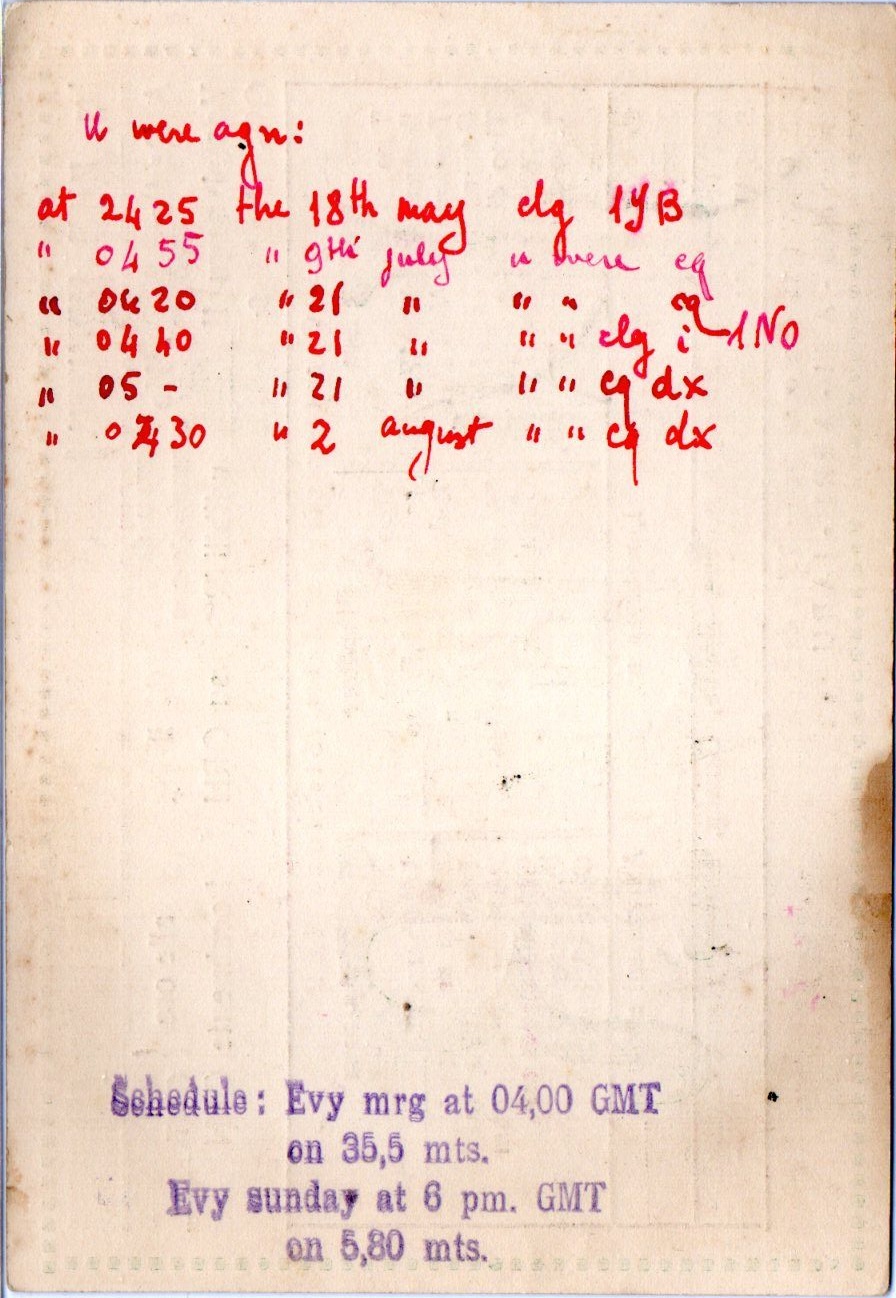 U were agn:
at 2425 the 18th may clg 1YB
" 0455 " 9th july u were cq
" 0420 " 21 " " " cq
" 0440 " 21 " " " clg i 1NO
" 05 - " 21 " " " cq dx
" 0430 " 2 august " " cq dx
Schedule: Evy mrg at 04,00 GMT
on 35,5 mts.
Evy sunday at 6 pm. GMT
on 5,80 mts.